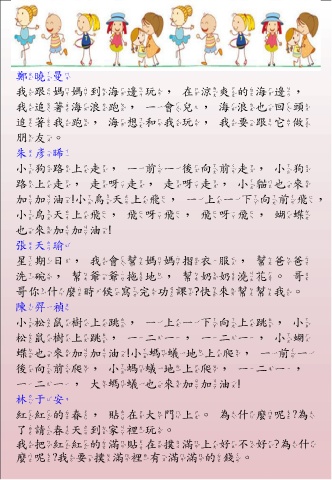 鄭曉曼
我跟媽媽到海邊玩，在涼爽的海邊，
我追著海浪跑，一會兒，海浪也回頭
追著我跑，海想和我玩，我要跟它做
朋友。
朱彥晞
小狗路上走，一前一後向前走，小狗
路上走，走呀走，走呀走，小貓也來
加加油!小鳥天上飛，一上一下向前飛，
小鳥天上飛，飛呀飛，飛呀飛，蝴蝶
也來加加油!
張天瑜
星期日，我會幫媽媽摺衣服，幫爸爸
洗碗，幫爺爺拖地，幫奶奶澆花。哥
哥你什麼時候寫完功課?快來幫幫我。
陳昇禎
小松鼠樹上跳，一上一下向上跳，小
松鼠樹上跳，一二一，一二一，小蝴
蝶也來加加油!小螞蟻地上爬，一前一
後向前爬，小螞蟻地上爬，一二一，
一二一，大螞蟻也來加加油!
林于安
紅紅的春，貼在大門上。為什麼呢?為
了請春天到家裡玩。
我把紅紅的滿貼在撲滿上好不好?為什
麼呢?我要撲滿裡有滿滿的錢。